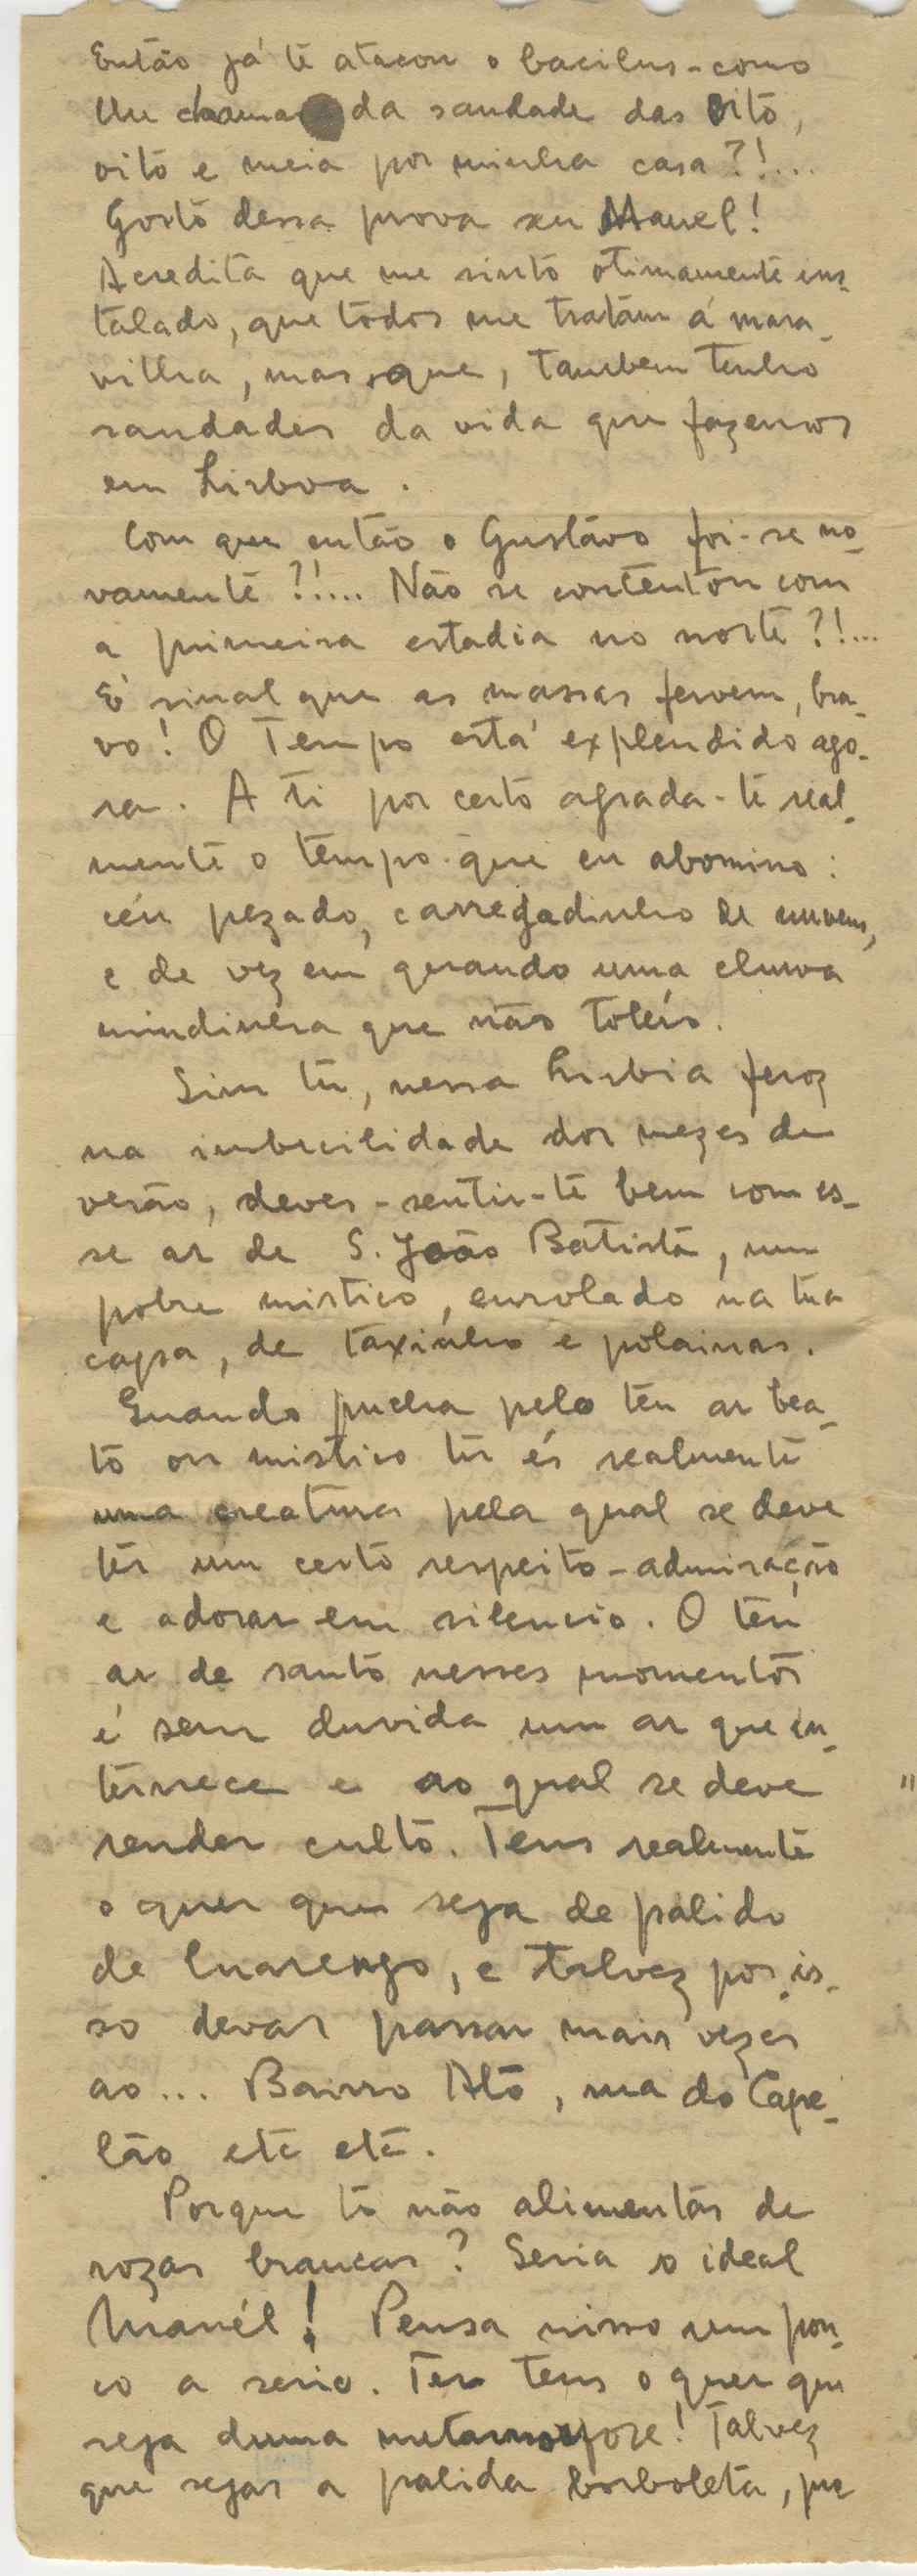 Então já te atacou o bacilus-como
lhe chama da saudade das oito,
oito e meia por minha casa?!...
Gosto dessa prova seu Manel!
Acredita que me sinto otimamente ins-
talado, que todos me tratam á mara-
vilha, mas que, tambem tenho
saudades da vida que fazemos
em Lisboa.
Com que então o Gustavo foi-se no-
vamente?!.... Não se contentou com
a primeira estadia no norte?!...
E' sinal que as massas fervem, bra-
vo! O Tempo está explendido ago-
ra. A ti por certo agrada-te real-
mente o tempo que eu abomino:
céu pezado, carregadinho de nuvens,
e de vez em quando uma chuva
miudinha que não tolero.
Sim tu, nessa Lisbia feroz
na imbecilidade dos mezes de
verão, deves-sentir-te bem com es-
se ar de S. João Batista, um
pobre mistico, enrolado na tua
capa, de taxinho e polainas.
Quando pucha pelo teu ar bea-
to ou mistico tu és realmente
uma creatura pela qual se deve
ter um certo respeito-admiração
e adorar em silencio. O teu
ar de santo nesses momentos
é sem duvida um ar que en-
ternece e ao qual se deve
render culto. Tens realmente
o quer que seja de palido
de luarengo, e talvez por is-
so devas passar mais vezes
ao... Bairro Alto, rua do Cape-
lão etc etc.
Porque te não alimentas de
rozas brancas? Seria o ideal
Manél! Pensa nisso um pou-
co a serio. Tu tens o quer que
seja duma metamorfose! Talvez
que sejas a palida borboleta, que